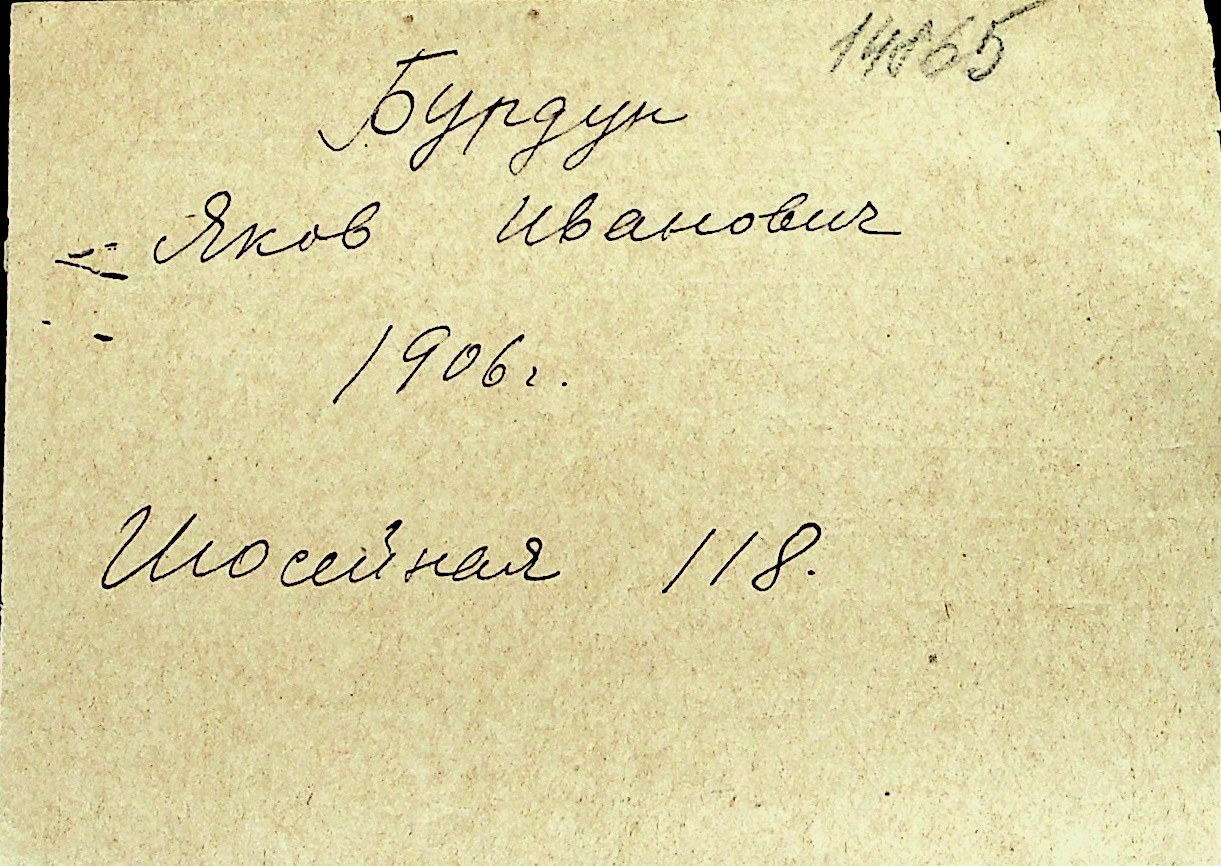 Бурдун
Яков Иванович
1906г.
Шосейная 118.